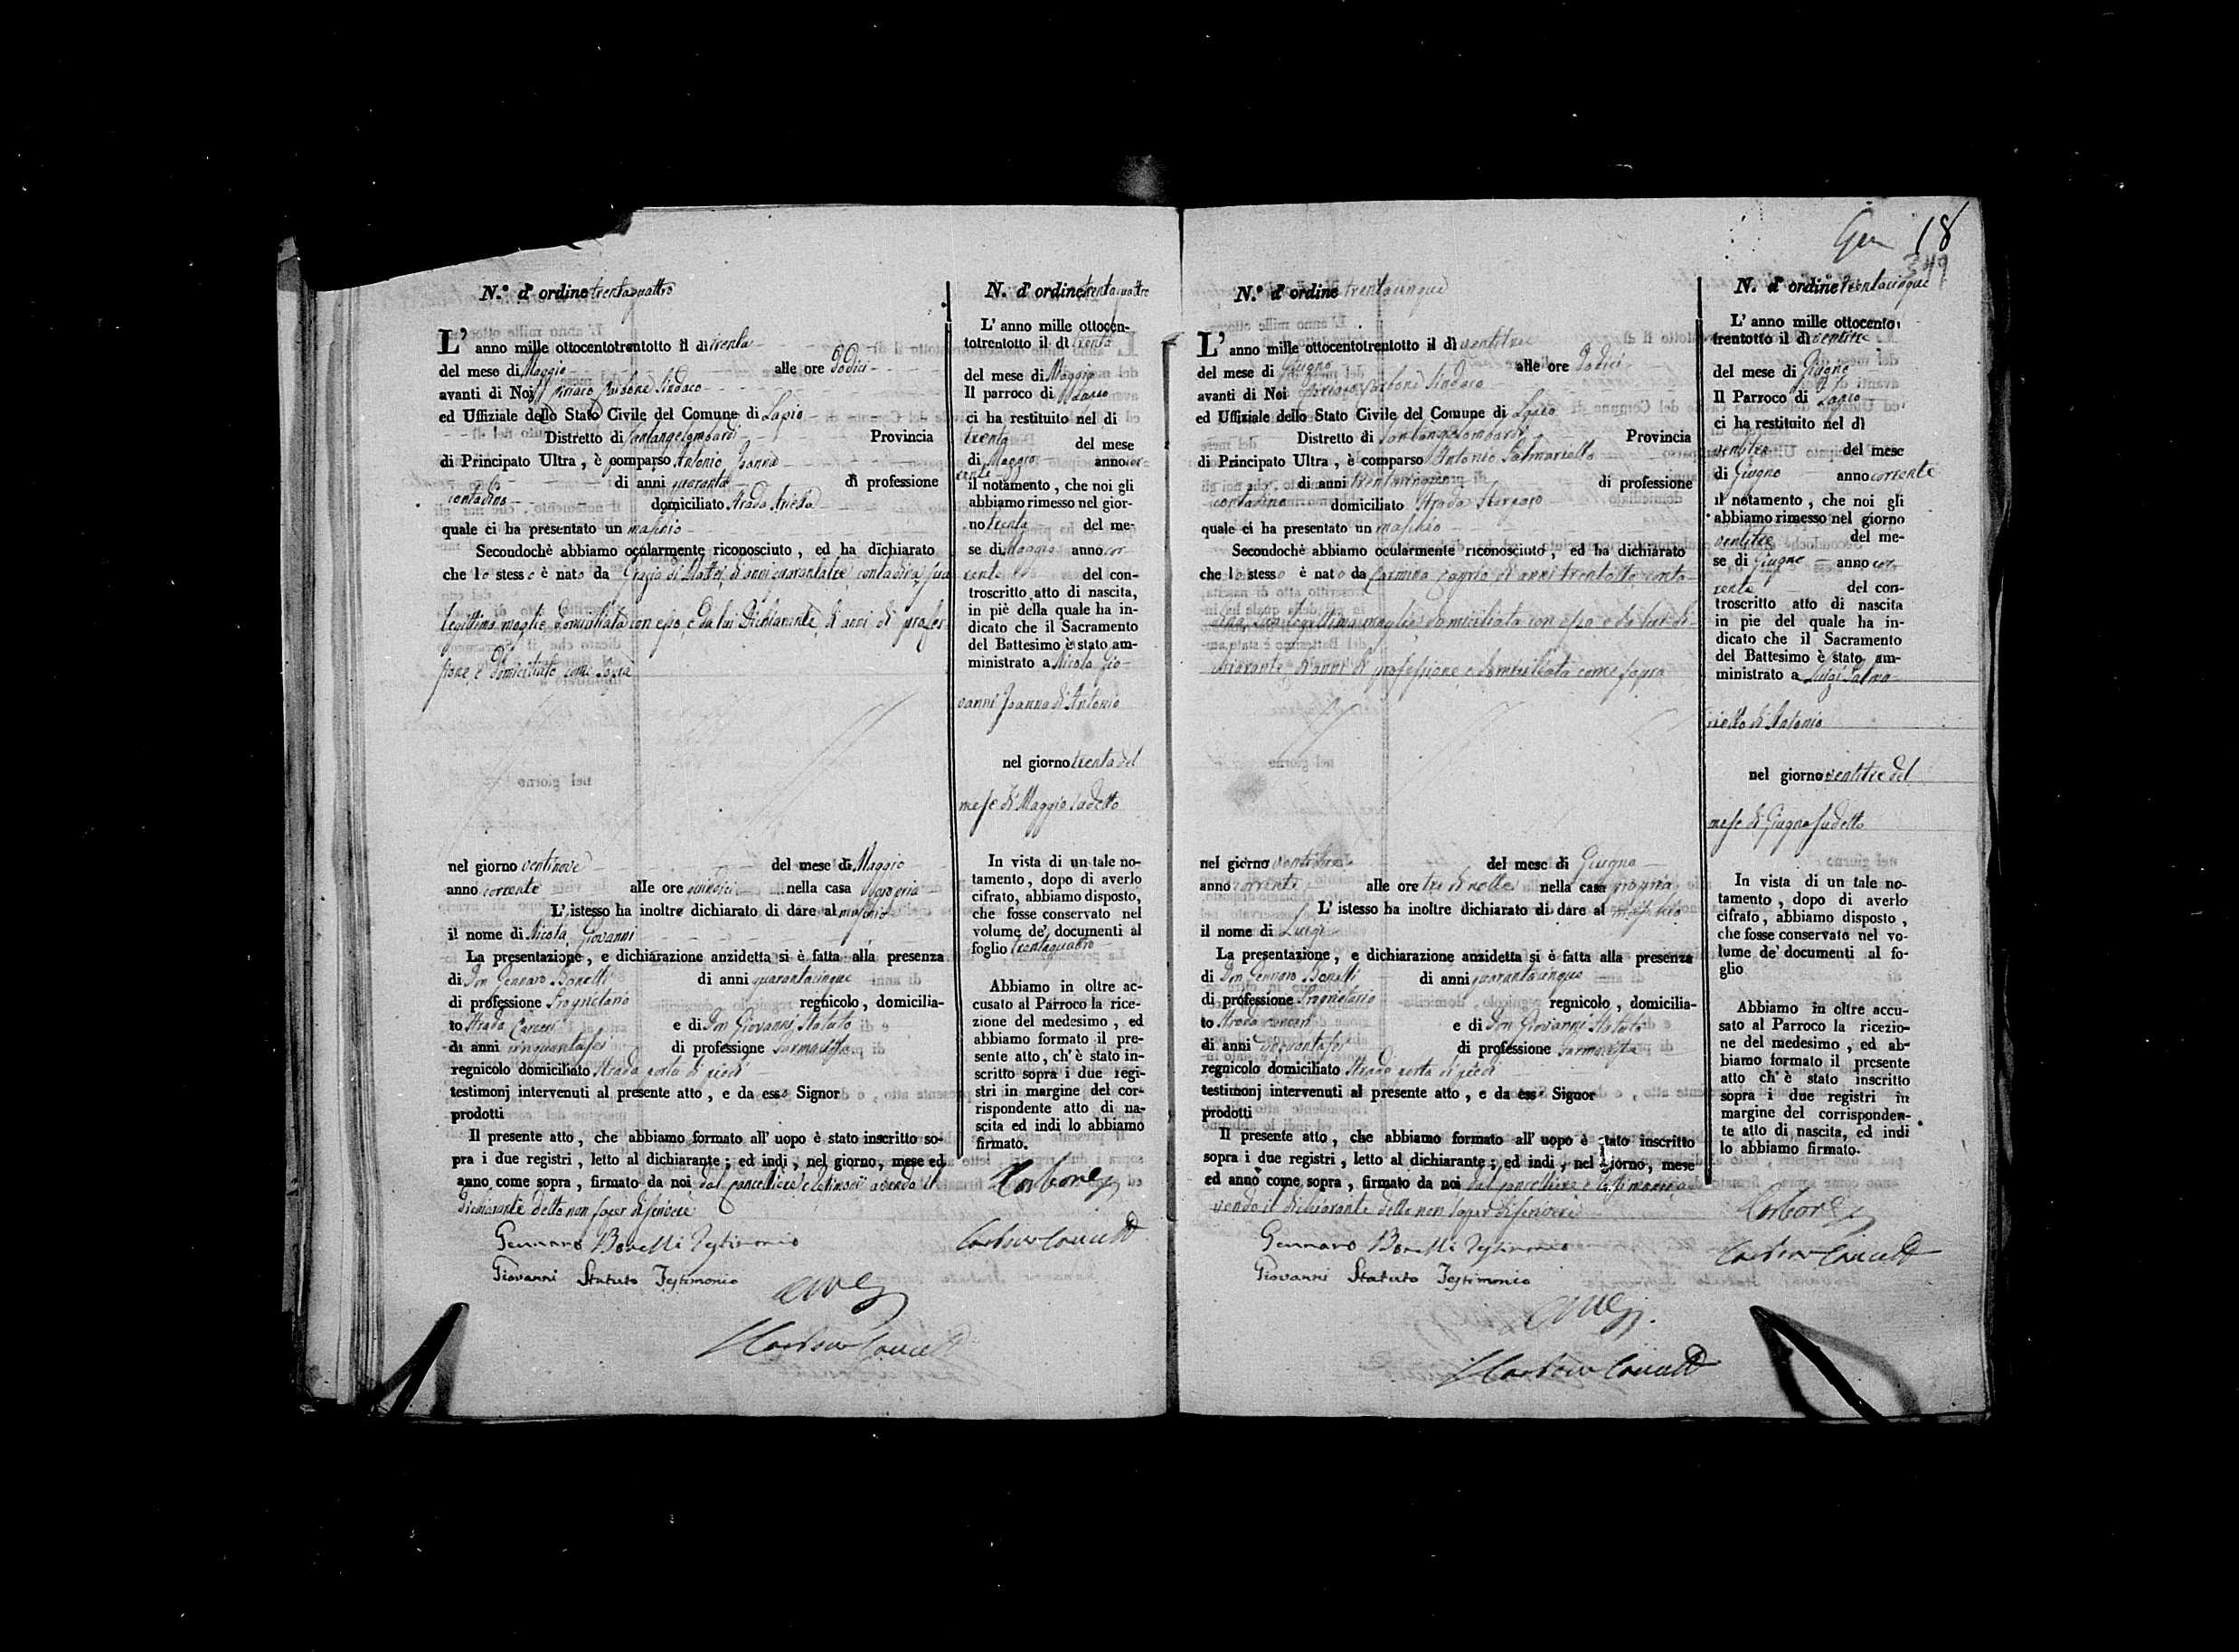 N.º d'ordine trentaquattro
L' anno mille ottocentotrentotto il dì trenta
del mese di Maggio alle ore dodici
avanti di Noi Ciriaco Carbone Sindaco
ed Uffiziale dello Stato Civile del Comune di Lapio
Distretto di Santangelombardi Provincia
di Principato Ultra, è comparso Antonio Joanna
di anni quaranta di professione
contadino domiciliato Strada
quale ci ha presentato un maschio
Secondochè abbiamo ocularmente riconosciuto, ed ha dichiarato
che lo stesso è nato da Grazia di Mattei di anni quarantatre contadina sua
legittima moglie domiciliata con esso, e da lui Dichiarante di anni di profes
sione, e domiciliato come sopra
nel giorno ventinove del mese di Maggio
anno corrente alle ore quindici nella casa propria
L' istesso ha inoltre dichiarato di dare al maschio
il nome di Nicola Giovanni
La presentazione, e dichiarazione anzidetta si è fatta alla presenza
di Don Gennaro Bonelli di anni quarantacinque
di professione Proprietario regnicolo, domicilia-
to Strada Carceri e di Don Giovanni Statuto
di anni cinquantasei di professione Farmacista
regnicolo domiciliato Strada porta di piedi
testimonj intervenuti al presente atto, e da esso Signor
prodotti
Il presente atto, che abbiamo formato all' uopo è stato inscritto so-
pra i due registri, letto al dichiarante; ed indi, nel giorno, mese ed
anno come sopra, firmato da noi dal Cancelliere e testimonii avendo il
dichiarante detto non saper di scrivere
Gennaro Bonelli Testimonio
Giovanni Statuto Testimonio
N. d'ordine trentaquattro
L' anno mille ottocen-
totrentotto il dì trenta
del mese di Maggio
Il parroco di Lapio
ci ha restituito nel dì
trenta del mese
di Maggio anno cor-
rente
il notamento, che noi gli
abbiamo rimesso nel gior-
no trenta del me-
se di Maggio anno cor
rente del con-
troscritto atto di nascita,
in piè della quale ha in-
dicato che il Sacramento
del Battesimo è stato am-
ministrato a Nicola Gio-
vanni Joanna di Antonio
nel giorno trenta del
mese di Maggio sudetto
In vista di un tale no-
tamento, dopo di averlo
cifrato, abbiamo disposto,
che fosse conservato nel
volume de' documenti al
foglio trentaquattro
Abbiamo in oltre ac-
cusato al Parroco la rice-
zione del medesimo, ed
abbiamo formato il pre-
sente atto, ch' è stato in-
scritto sopra i due regi-
stri in margine del cor-
rispondente atto di na-
scita ed indi lo abbiamo
firmato.
Carbone
18
349
N.º d'ordine trentacinque
L' anno mille ottocentotrentotto il dì ventitre
del mese di Giugno alle ore dodici
avanti di Noi Ciriaco Carbone Sindaco
ed Uffiziale dello Stato Civile del Comune di Lapio
Distretto di Santangelombardi Provincia
di Principato Ultra, è comparso Antonio Palmariello
di anni di professione
contadino domiciliato Strada
quale ci ha presentato un maschio
Secondochè abbiamo ocularmente riconosciuto, ed ha dichiarato
che lo stesso è nato da Carmina Caprio di anni trentotto conta-
dina, sua legittima moglie domiciliata con esso e da lui di-
chiarante di anni di professione e domiciliata come sopra
nel giorno ventidue del mese di Giugno
anno corrente alle ore tre di notte nella casa propria
L' istesso ha inoltre dichiarato di dare al maschio
il nome di Luigi
La presentazione, e dichiarazione anzidetta si è fatta alla presenza
di Don Gennaro Bonelli di anni quarantacinque
di professione Proprietario regnicolo, domicilia-
to Strada Carceri e di Don Giovanni Statuto
di anni cinquantasei di professione Farmacista
regnicolo domiciliato Strada porta di piedi
testimonj intervenuti al presente atto, e da esso Signor
prodotti
Il presente atto, che abbiamo formato all' uopo è stato inscritto
sopra i due registri, letto al dichiarante; ed indi, nel giorno, mese
ed anno come sopra, firmato da noi dal Cancelliere e testimonii a-
vendo il dichiarante detto non saper di scrivere
Gennaro Bonelli Testimonio
Giovanni Statuto Testimonio
N. d'ordine trentacinque
L' anno mille ottocento
trentotto il dì ventitre
del mese di Giugno
Il Parroco di Lapio
ci ha restituito nel dì
ventitre del mese
di Giugno anno corrente
il notamento, che noi gli
abbiamo rimesso nel giorno
ventitre del me-
se di Giugno anno cor-
rente del con-
troscritto atto di nascita
in pie del quale ha in-
dicato che il Sacramento
del Battesimo è stato am-
ministrato a Luigi Palma-
riello di Antonio
nel giorno ventitre del
mese di Giugno sudetto
In vista di un tale no-
tamento, dopo di averlo
cifrato, abbiamo disposto,
che fosse conservato nel vo-
lume de' documenti al fo-
glio
Abbiamo in oltre accu-
sato al Parroco la ricezio-
ne del medesimo, ed ab-
biamo formato il presente
atto ch' è stato inscritto
sopra i due registri in
margine del corrisponden-
te atto di nascita, ed indi
lo abbiamo firmato.
Carbone